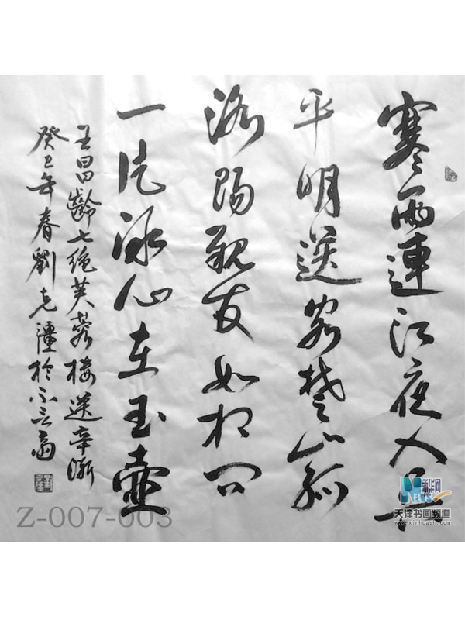 寒雨連江夜入吴
平明送客楚山孤
洛陽親友如相问
一片冰心在玉壺
王昌齡七绝芙蓉楼送辛渐
癸巳年春劉克潼於
Z-007-003
NEWS
天津书画频道